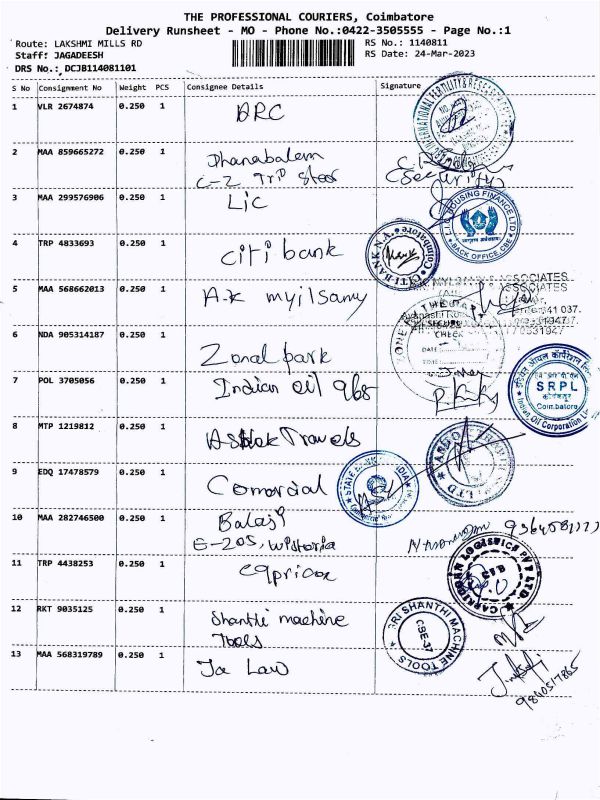 THE PROFESSIONAL COURIERS, Coimbatore
Delivery Runsheet - MO - Phone No.:0422-3505555 - Page No.:1
Route: LAKSHMI MILLS RD
RS No.: 1140811
Staff: JAGADEESH
RS Date: 24-Mar-2023
DRS No.: DCJB114081101
S No Consignment No Weight PCS Consignee Details Signature
1 VLR 2674874 0.250 1 ARC
2 MAA 859665272 0.250 1 Dhanabalem
C-2 Trp Steel
Security
3 MAA 299576906 0.250 1 Lic
HOUSING FINANCE LTD
BACK OFFICE, CBE
4 TRP 4833693 0.250 1 Citi bank
CITIBANK N.A. Coimbatore
5 MAA 568662013 0.250 1 A.K myilsamy
ASSOCIATES
6 NDA 905314187 0.250 1 Zonal park
SECURITY
CHECK
DATE
TIME
7 POL 3705056 0.250 1 Indian oil 968
SRPL
Coimbatore
Indian Oil Corporation Ltd
8 MTP 1219812 0.250 1 Ashok Travels
9 EDQ 17478579 0.250 1 Comercial
STATE BANK OF INDIA
10 MAA 282746500 0.250 1 Balaji
E-205, wistoria
11 TRP 4438253 0.250 1 Capricon
LOGISTICS PVT LTD
12 RKT 9035125 0.250 1 Shanthi machine
Tools
SRI SHANTHI MACHINE TOOLS
CBE-37
13 MAA 568319789 0.250 1 Ja Law
9840517865